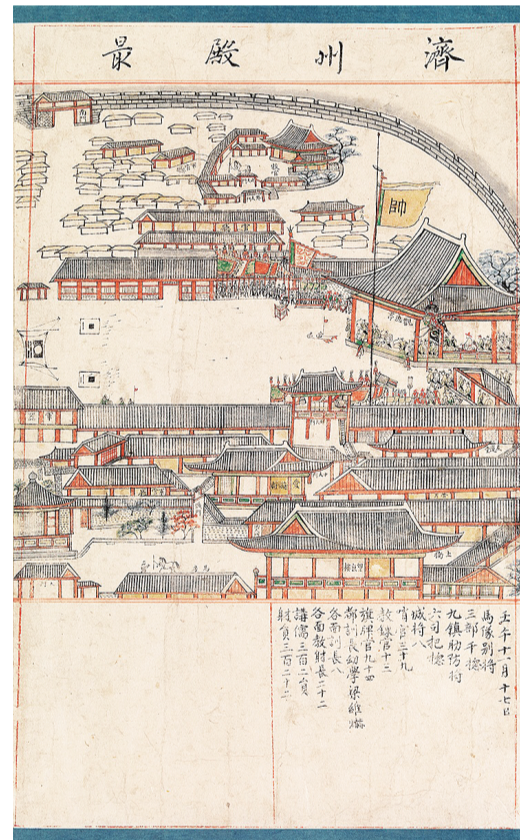 濟州殿最
帥
望京樓
壬午十一月十七日
馬隊別將
三部千摠
九鎭助防將
六司把摠
城將八
哨官三十九
敎鍊官十三
旗牌官九十四
都訓長幼學梁維
各面訓長八
各面敎射長二十二
講儒三百二員
射員三百二十二